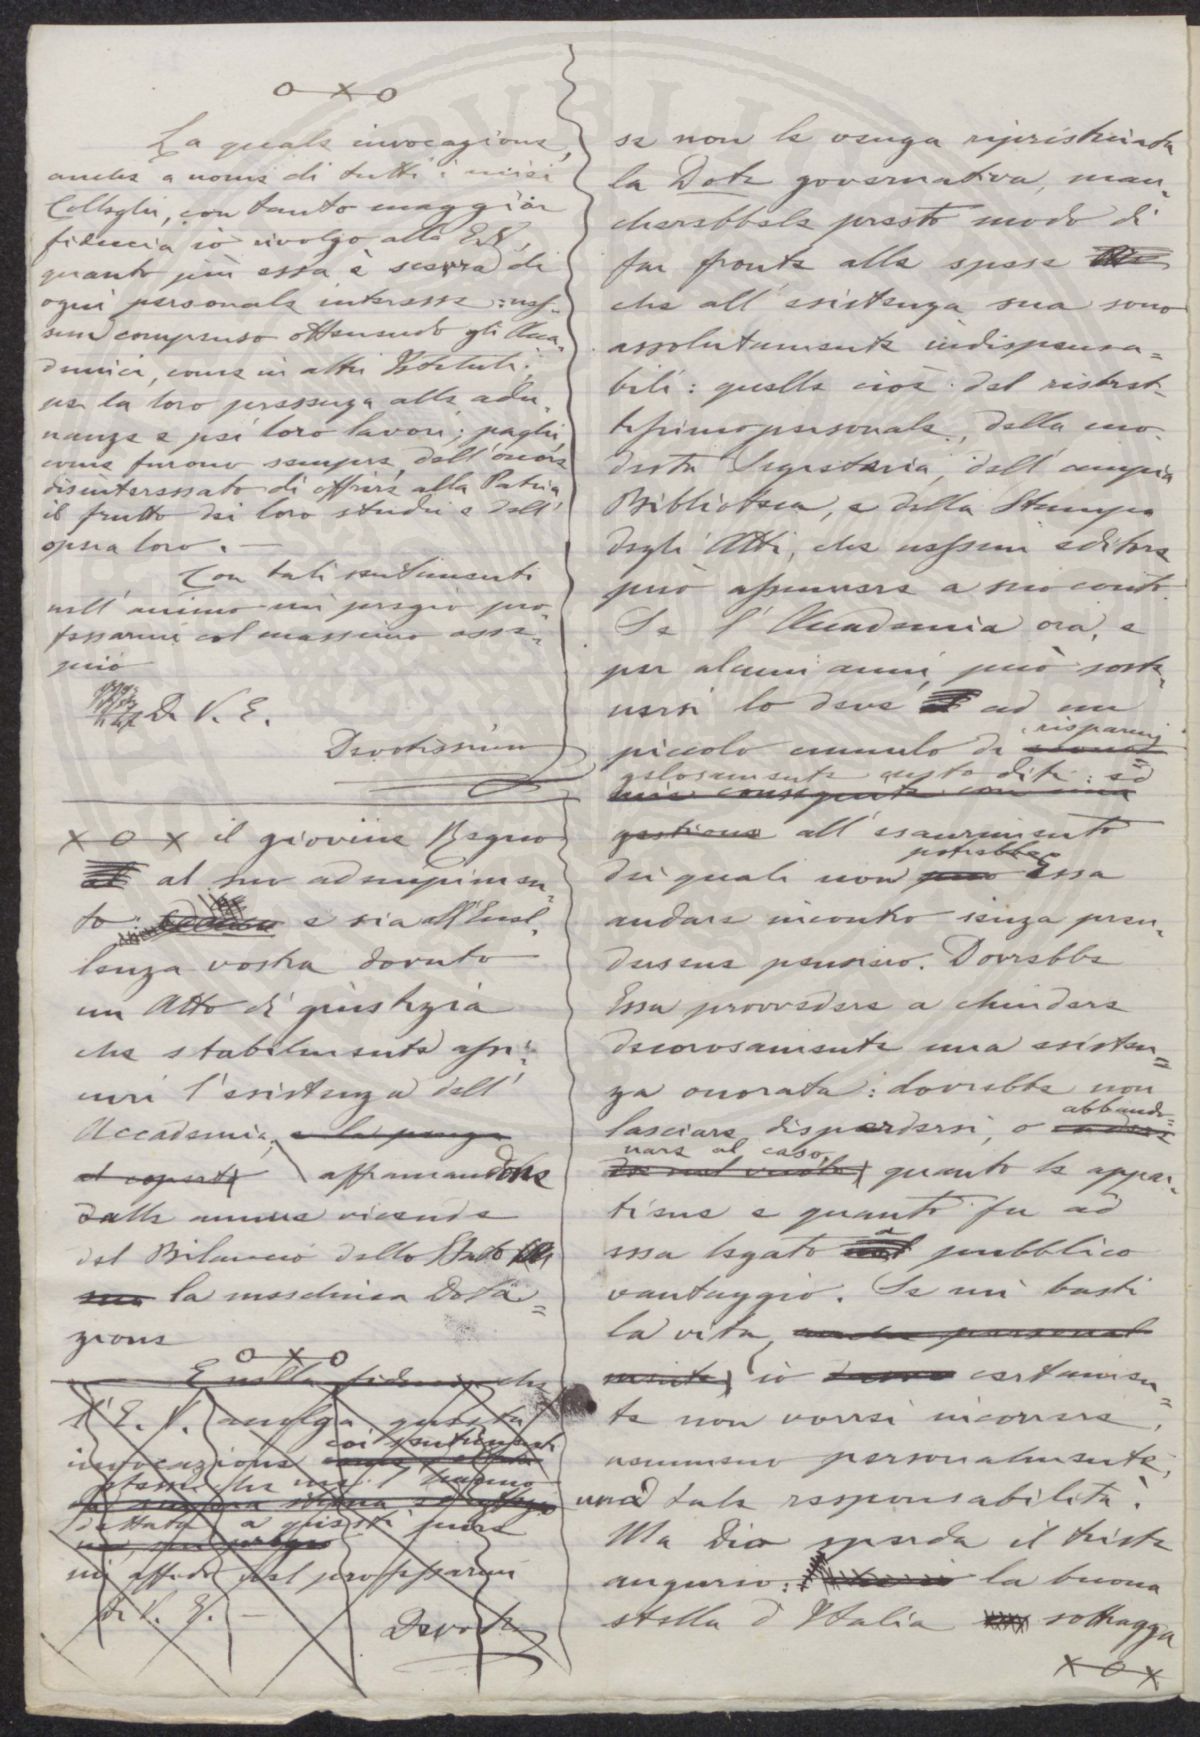 o x o
La quale invocazione,
anche a nome di tutti i miei
Colleghi, con tanto maggior
fiducia io rivolgo alla E.V.,
quanto più essa è scevra di
ogni personale interesse: nes-
sun compenso ottenendo gli Acca-
demici, come in altri Istituti,
per la loro presenza alle adu-
nanze e pei loro lavori; paghi,
come furono sempre, dell'onore
disinteressato di offrire alla Patria
il frutto dei loro studi e dell'
opera loro. —
Con tali sentimenti
nell'animo mi pregio pro-
fessarmi col massimo osse-
quio
Di V. E.
Devotissimo
x o x il giovine Regno
al suo adempimen-
to e sia all'Eccel-
lenza vostra dovuto
un Atto di giustizia
che stabilmente assi-
curi l'esistenza dell'
Accademia, e la ponga
al coperto affrancandone
dalle annue vicende
del Bilancio dello Stato
sua la meschina Dota=
zione
o x o
E nella fiducia che
l'E. V. accolga questa
invocazione coi sentimenti
stessi che me l'hanno
dettata a questi pure
mi affido nel professarmi
Di V. E. —
Devot
se non le venga ripristinata
la Dote governativa, man-
cherebbele presto modo di
far fronte alle spese
che all'esistenza sua sono
assolutamente indispensa=
bili: quelle cioè: del ristret-
tissimo personale, della mo-
desta Segreteria, dell'ampia
Biblioteca, e della Stampa
degli Atti, che nessun editore
può assumere a suo conto.
Se l'Accademia ora, e
per alcuni anni, può soste-
nersi lo deve ad un
piccolo cumulo di risparmj
gelosamente custoditi: ed
gestione all'esaurimento
dei quali non potrebbe Essa
andare incontro senza pren-
dersene pensiero. Dovrebbe
Essa provvedere a chiudere
decorosamente una esisten=
za onorata: dovrebbe non
lasciare disperdersi, o abbando=
nare al caso, quanto le appar-
tiene e quanto fu ad
essa legato a pubblico
vantaggio. Se mi basti
la vita, anche personal
mente, io certamen=
te non vorrei incorrere,
nemmeno personalmente,
una tale responsabilità.
Ma Dio sperda il triste
augurio: la buona
stella d'Italia sottragga
x o x